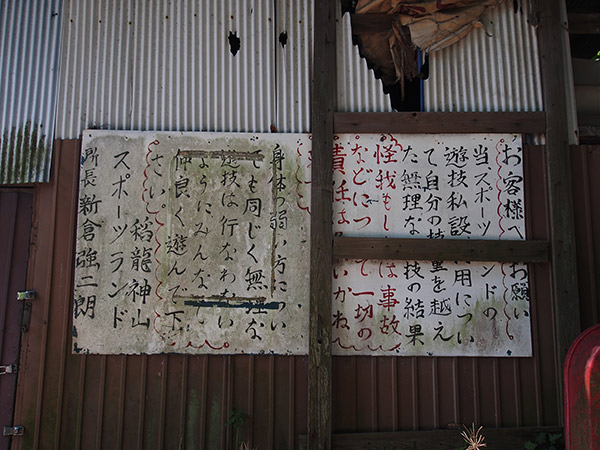 お客様へお願い
当スポーツランドの
遊技私設 用につい
て自分の技 を越え
た無理な 技の結果
怪我もし は事故
などにつ 一切の
責任は いかね
身体の弱い方につい
ても同じく無理な
遊技は行なわない
ようにみんな
仲良く遊んで下
さい。
稻龍神山
スポーツランド
長 新倉 二朗